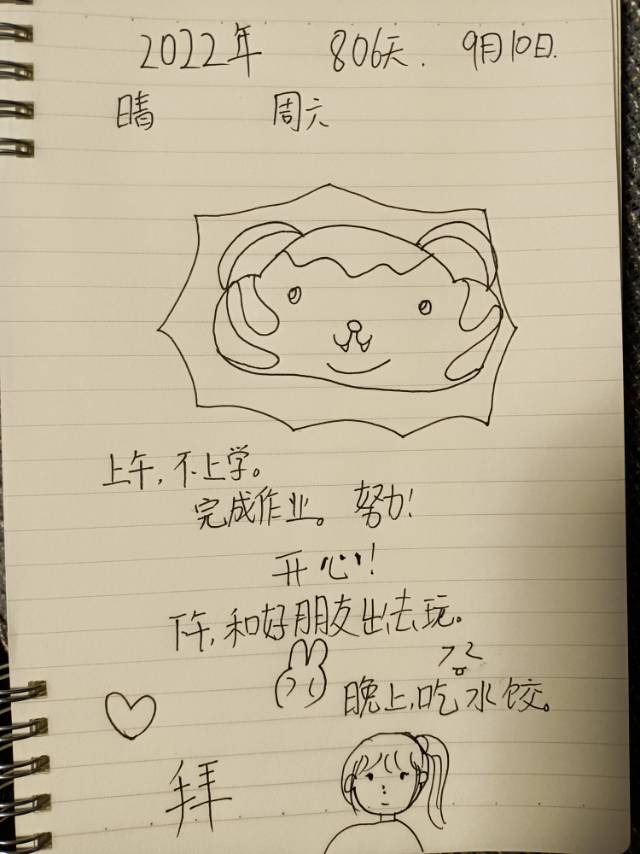 2022年 806天. 9月10日.
晴 周六
上午,不上学。
完成作业。努力!
开心!
下午,和好朋友出去玩。
晚上,吃水饺。
拜